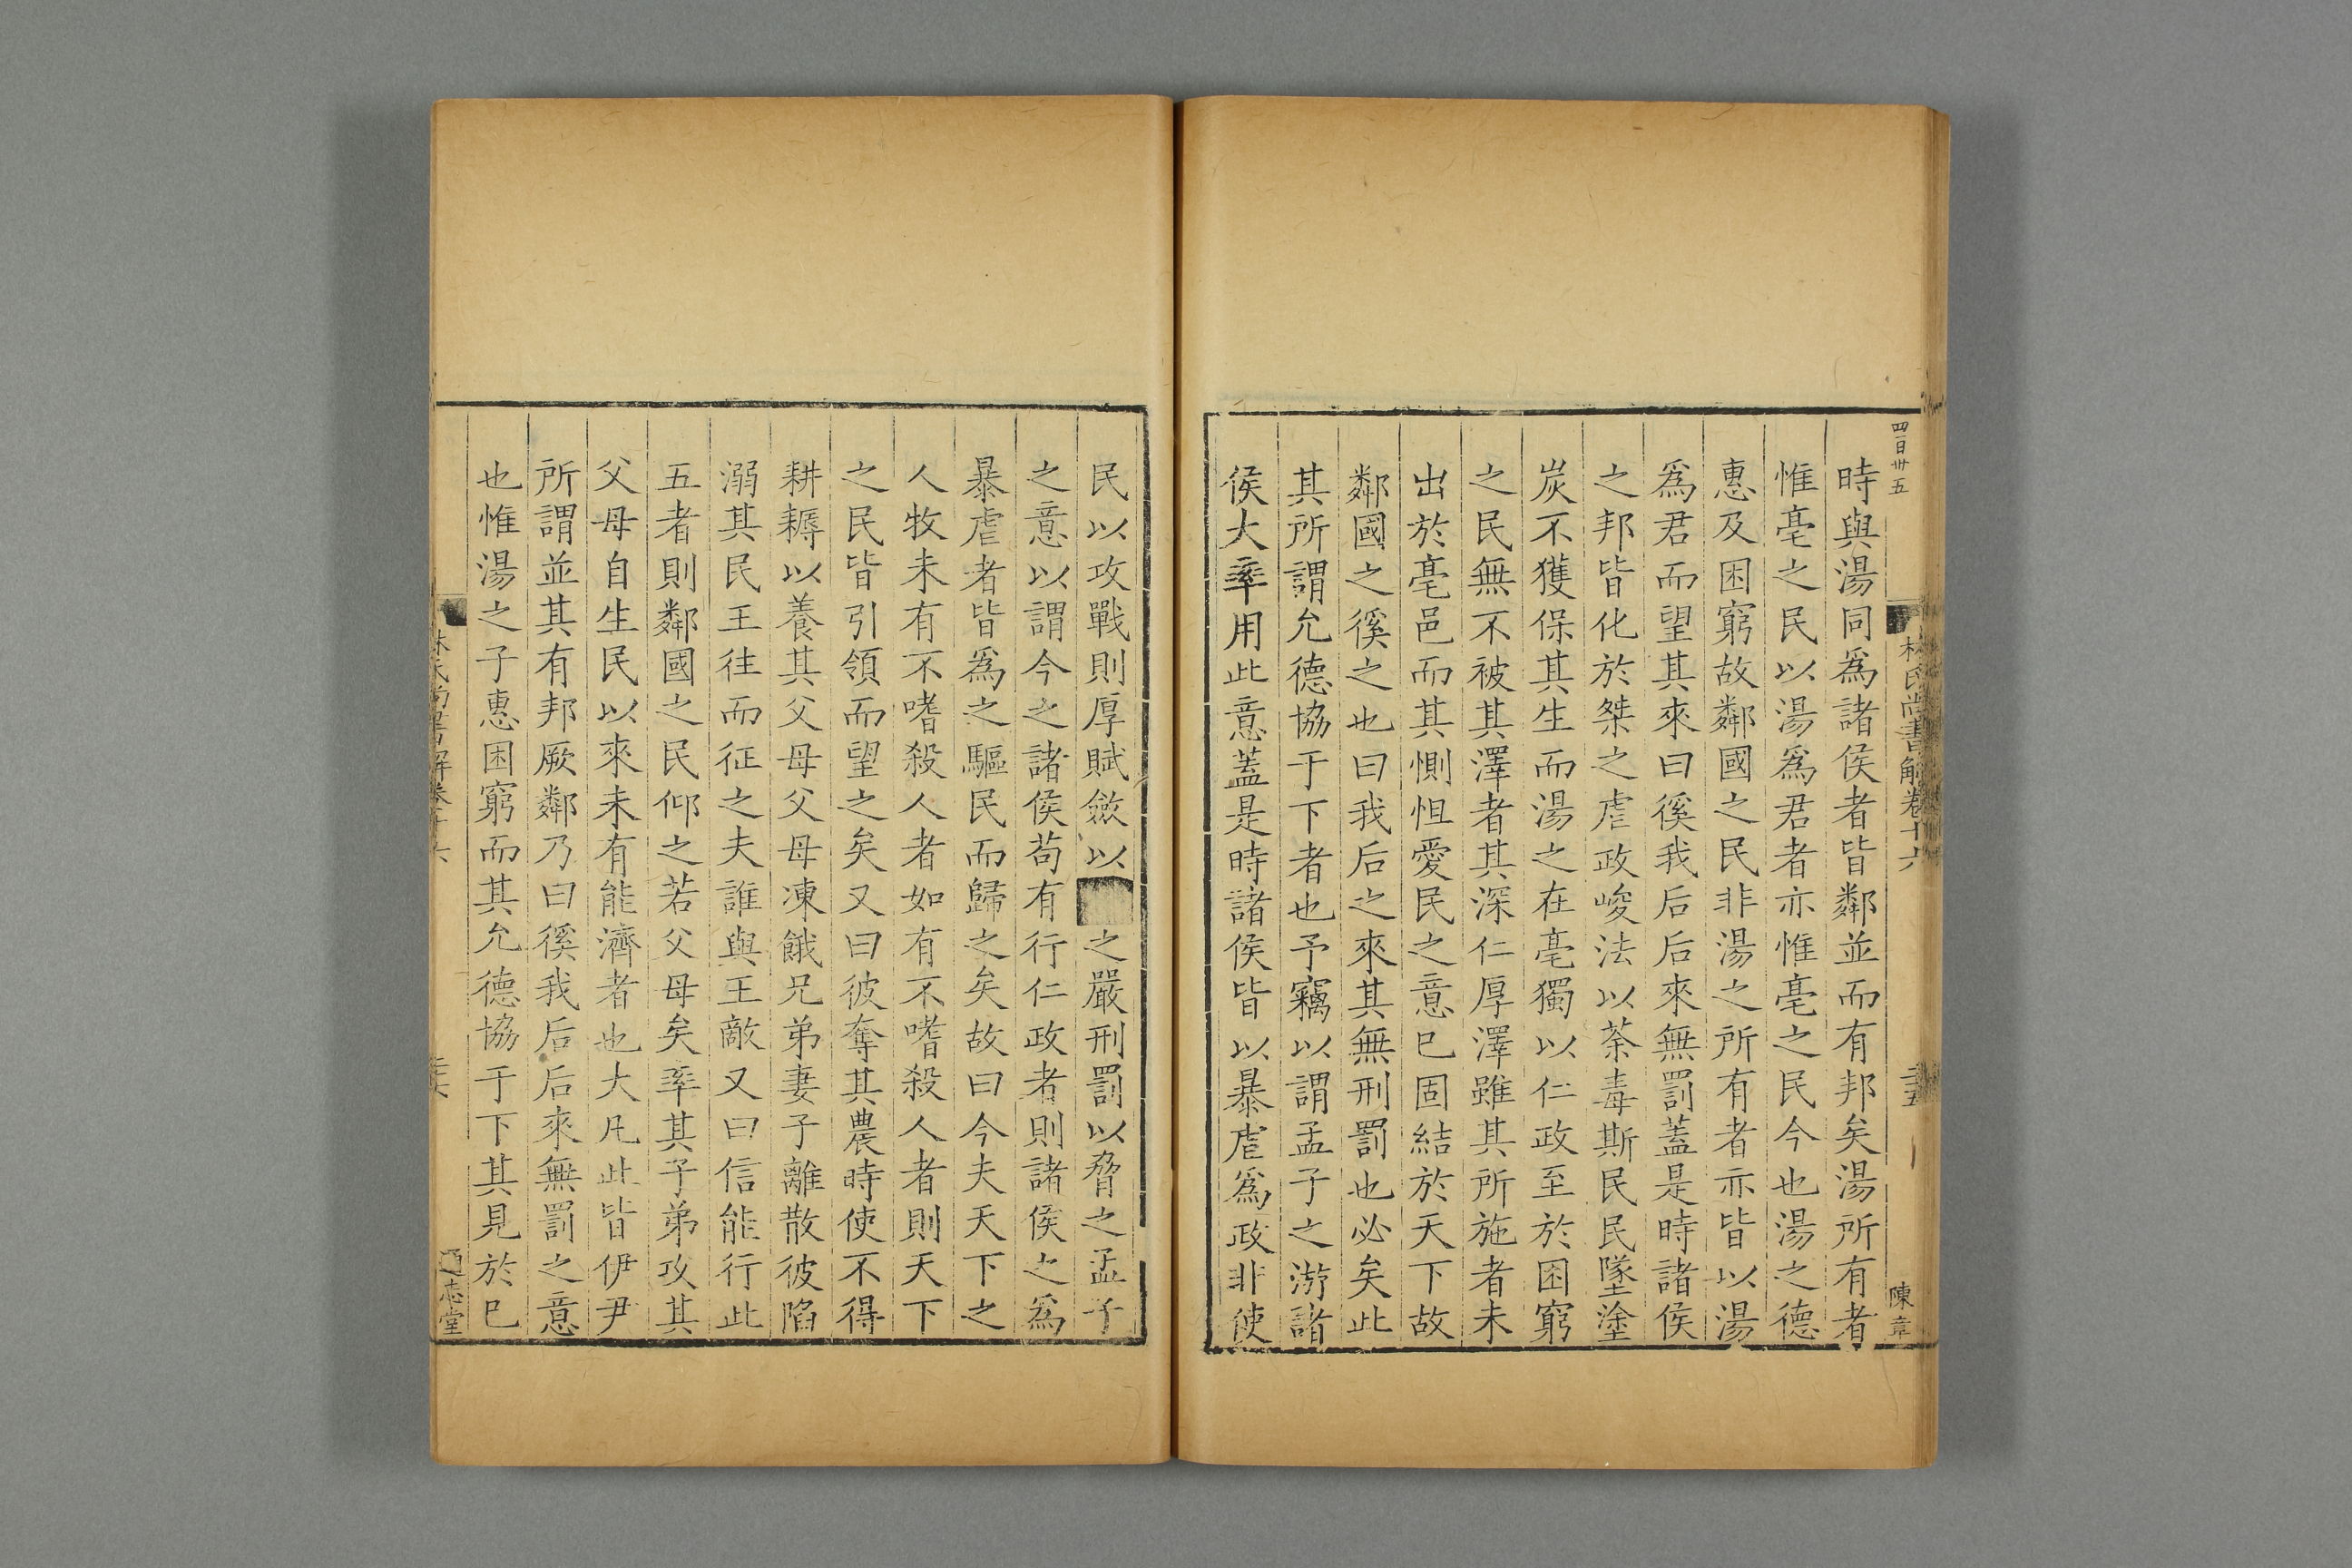 四百卅五
林氏尚書解卷十六
陳章
時與湯同爲諸侯者皆鄰並而有邦矣湯所有者
惟亳之民以湯爲君者亦惟亳之民今也湯之德
惠及困窮故鄰國之民非湯之所有者亦皆以湯
爲君而望其來曰徯我后后來無罰蓋是時諸侯
之邦皆化於桀之虐政峻法以荼毒斯民民墜塗
炭不獲保其生而湯之在亳獨以仁政至於困窮
之民無不被其澤者其深仁厚澤雖其所施者未
出於亳邑而其惻怛愛民之意已固結於天下故
鄰國之徯之也曰我后之來其無刑罰也必矣此
其所謂允德協于下者也予竊以謂孟子之游諸
侯大率用此意蓋是時諸侯皆以暴虐爲政非使
民以攻戰則厚賦斂以之嚴刑罰以脅之孟子
之意以謂今之諸侯苟有行仁政者則諸侯之爲
暴虐者皆爲之驅民而歸之矣故曰今夫天下之
人牧未有不嗜殺人者如有不嗜殺人者則天下
之民皆引領而望之矣又曰彼奪其農時使不得
耕耨以養其父母父母凍餓兄弟妻子離散彼陷
溺其民王往而征之夫誰與王敵又曰信能行此
五者則鄰國之民仰之若父母矣率其子弟攻其
父母自生民以來未有能濟者也大凡此皆伊尹
所謂並其有邦厥鄰乃曰徯我后后來無罰之意
也惟湯之子惠困窮而其允德協于下其見於已
林氏尚書解卷十六
通志堂